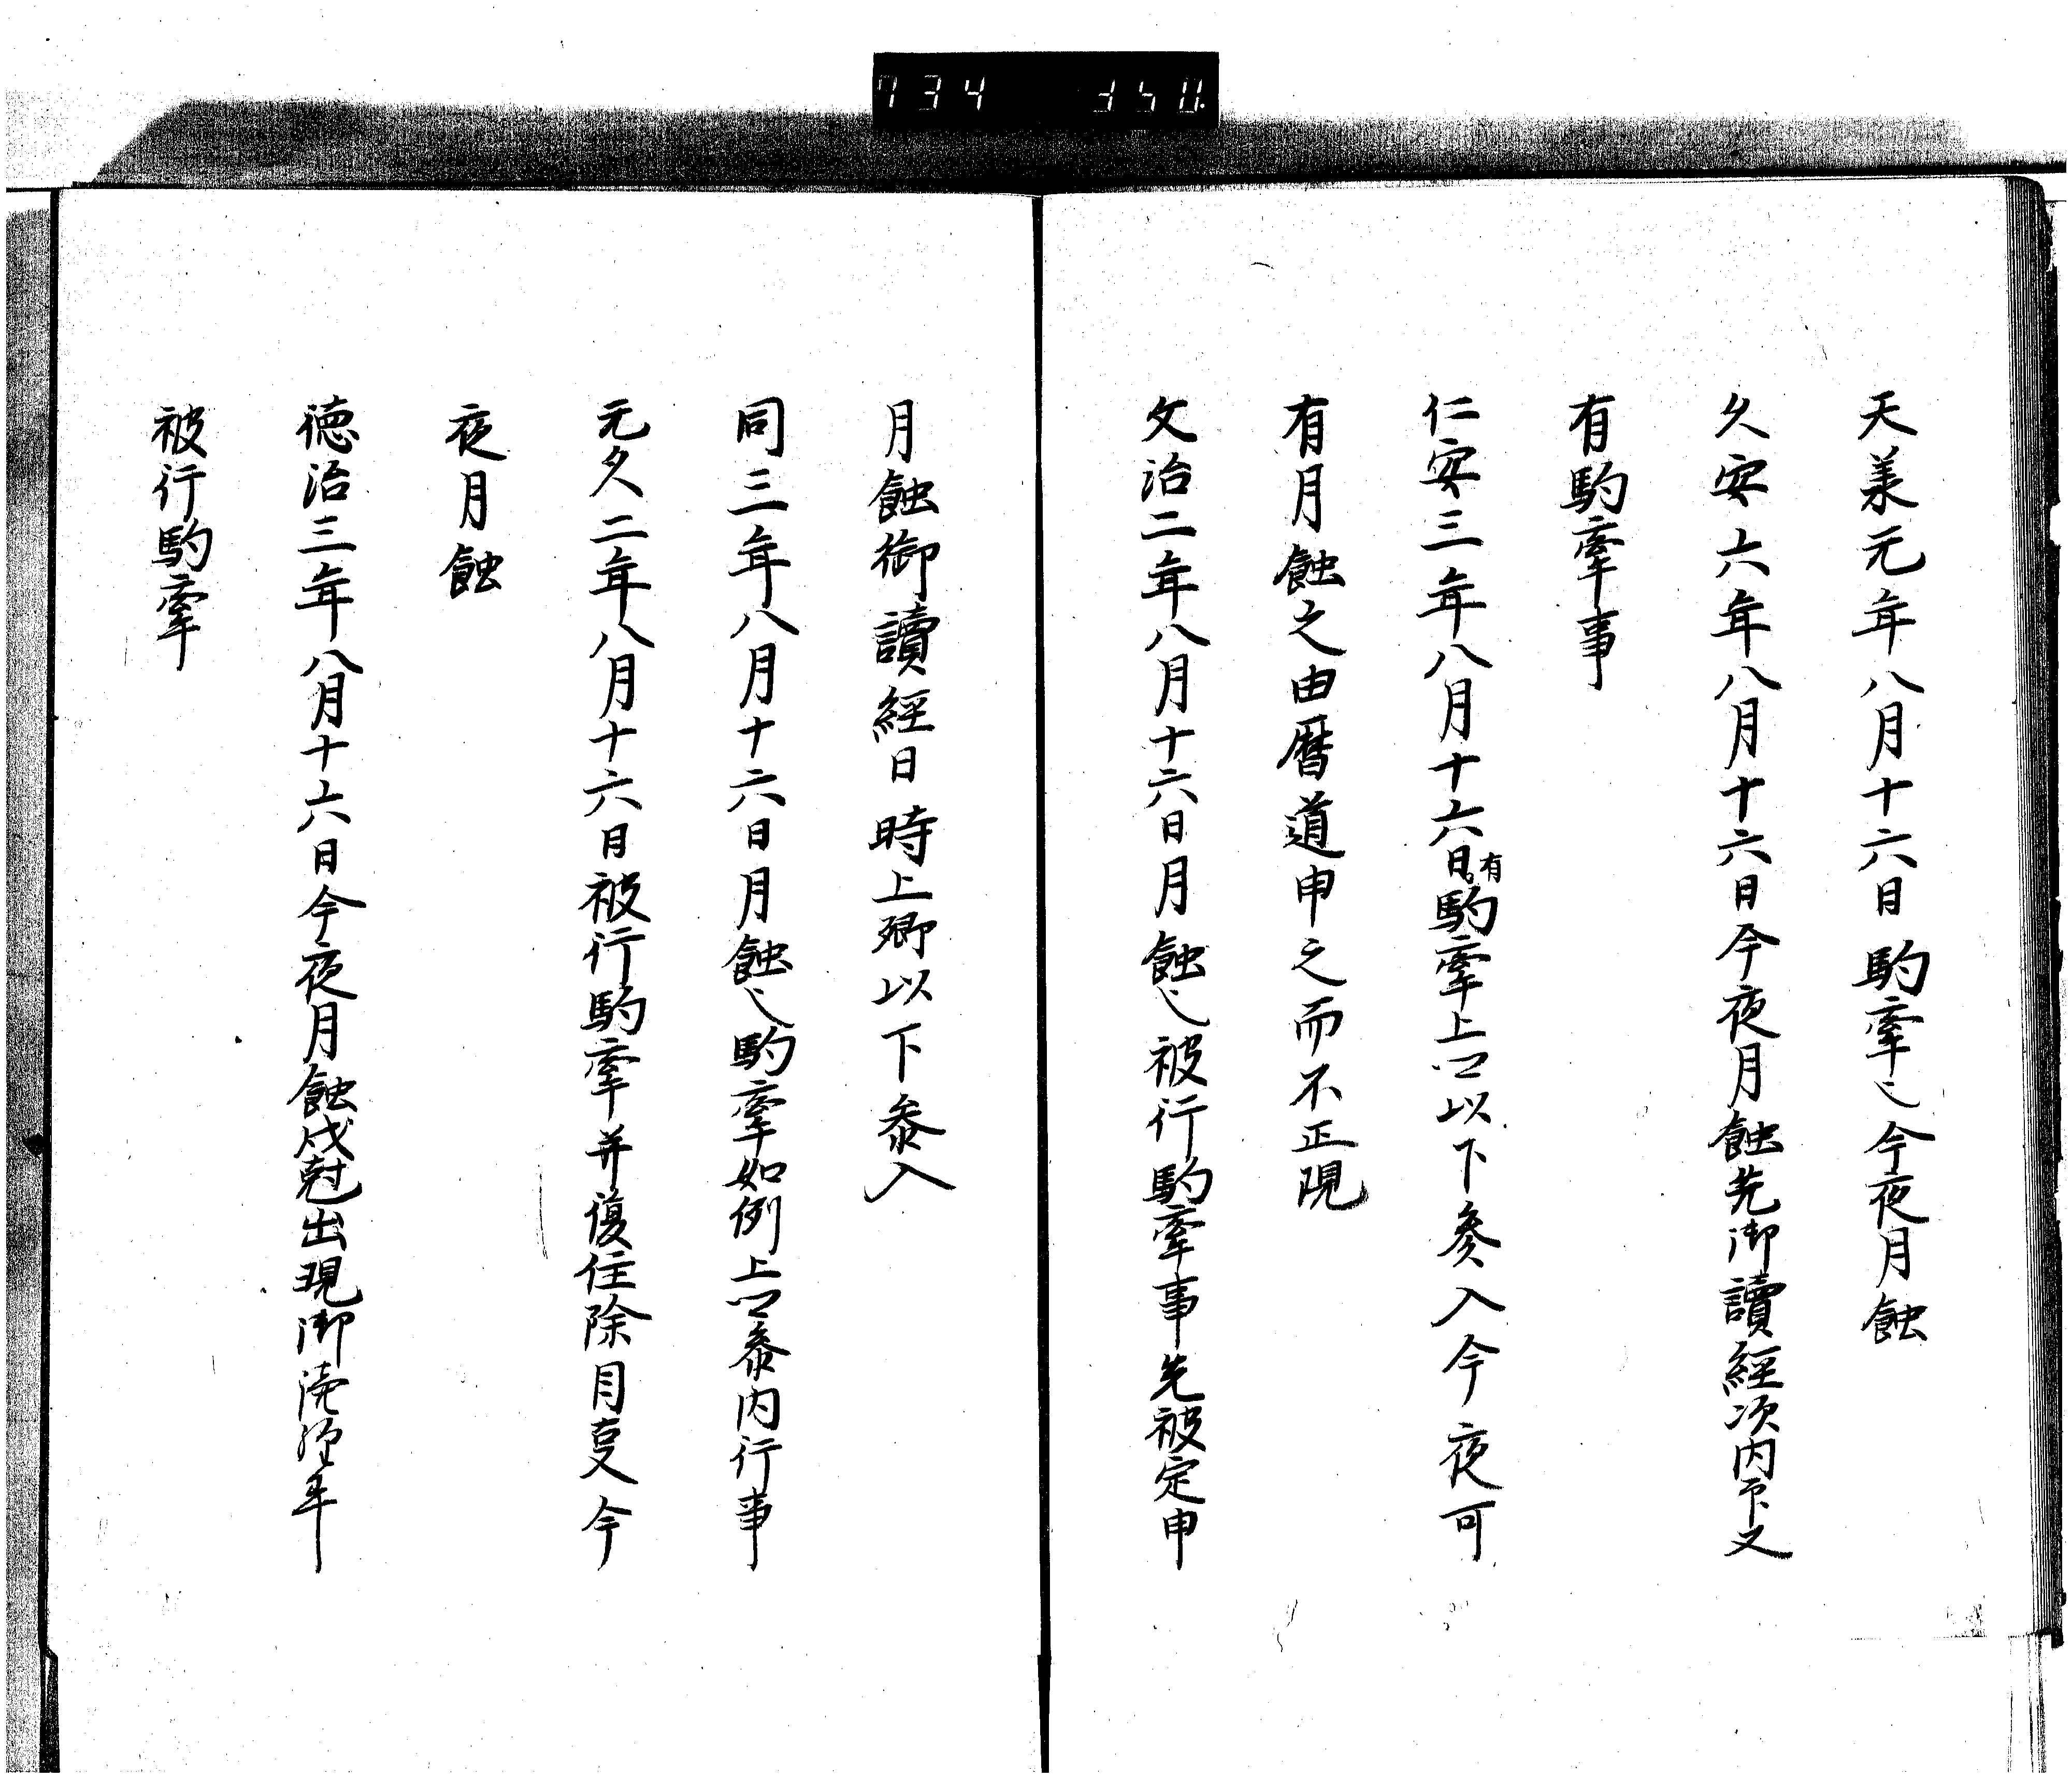 734 350
天養元年八月十六日駒牽也今夜月蝕
久安六年八月十六日今夜月蝕先御讀經次内印又
有駒牽事
仁安三年八月十六日有駒牽上卿以下參入今夜可
有月蝕之由暦道申之而不正現
文治二年八月十六日月蝕也被行駒牽事先被定申
月蝕御讀經日時上卿以下参入
同三年八月十六日月蝕也駒牽如例上卿参内行事
元久二年八月十六日被行駒牽并復任除目事又今
夜月蝕
徳治三年八月十六日今夜月蝕戌尅出現御読経年
被行駒牽